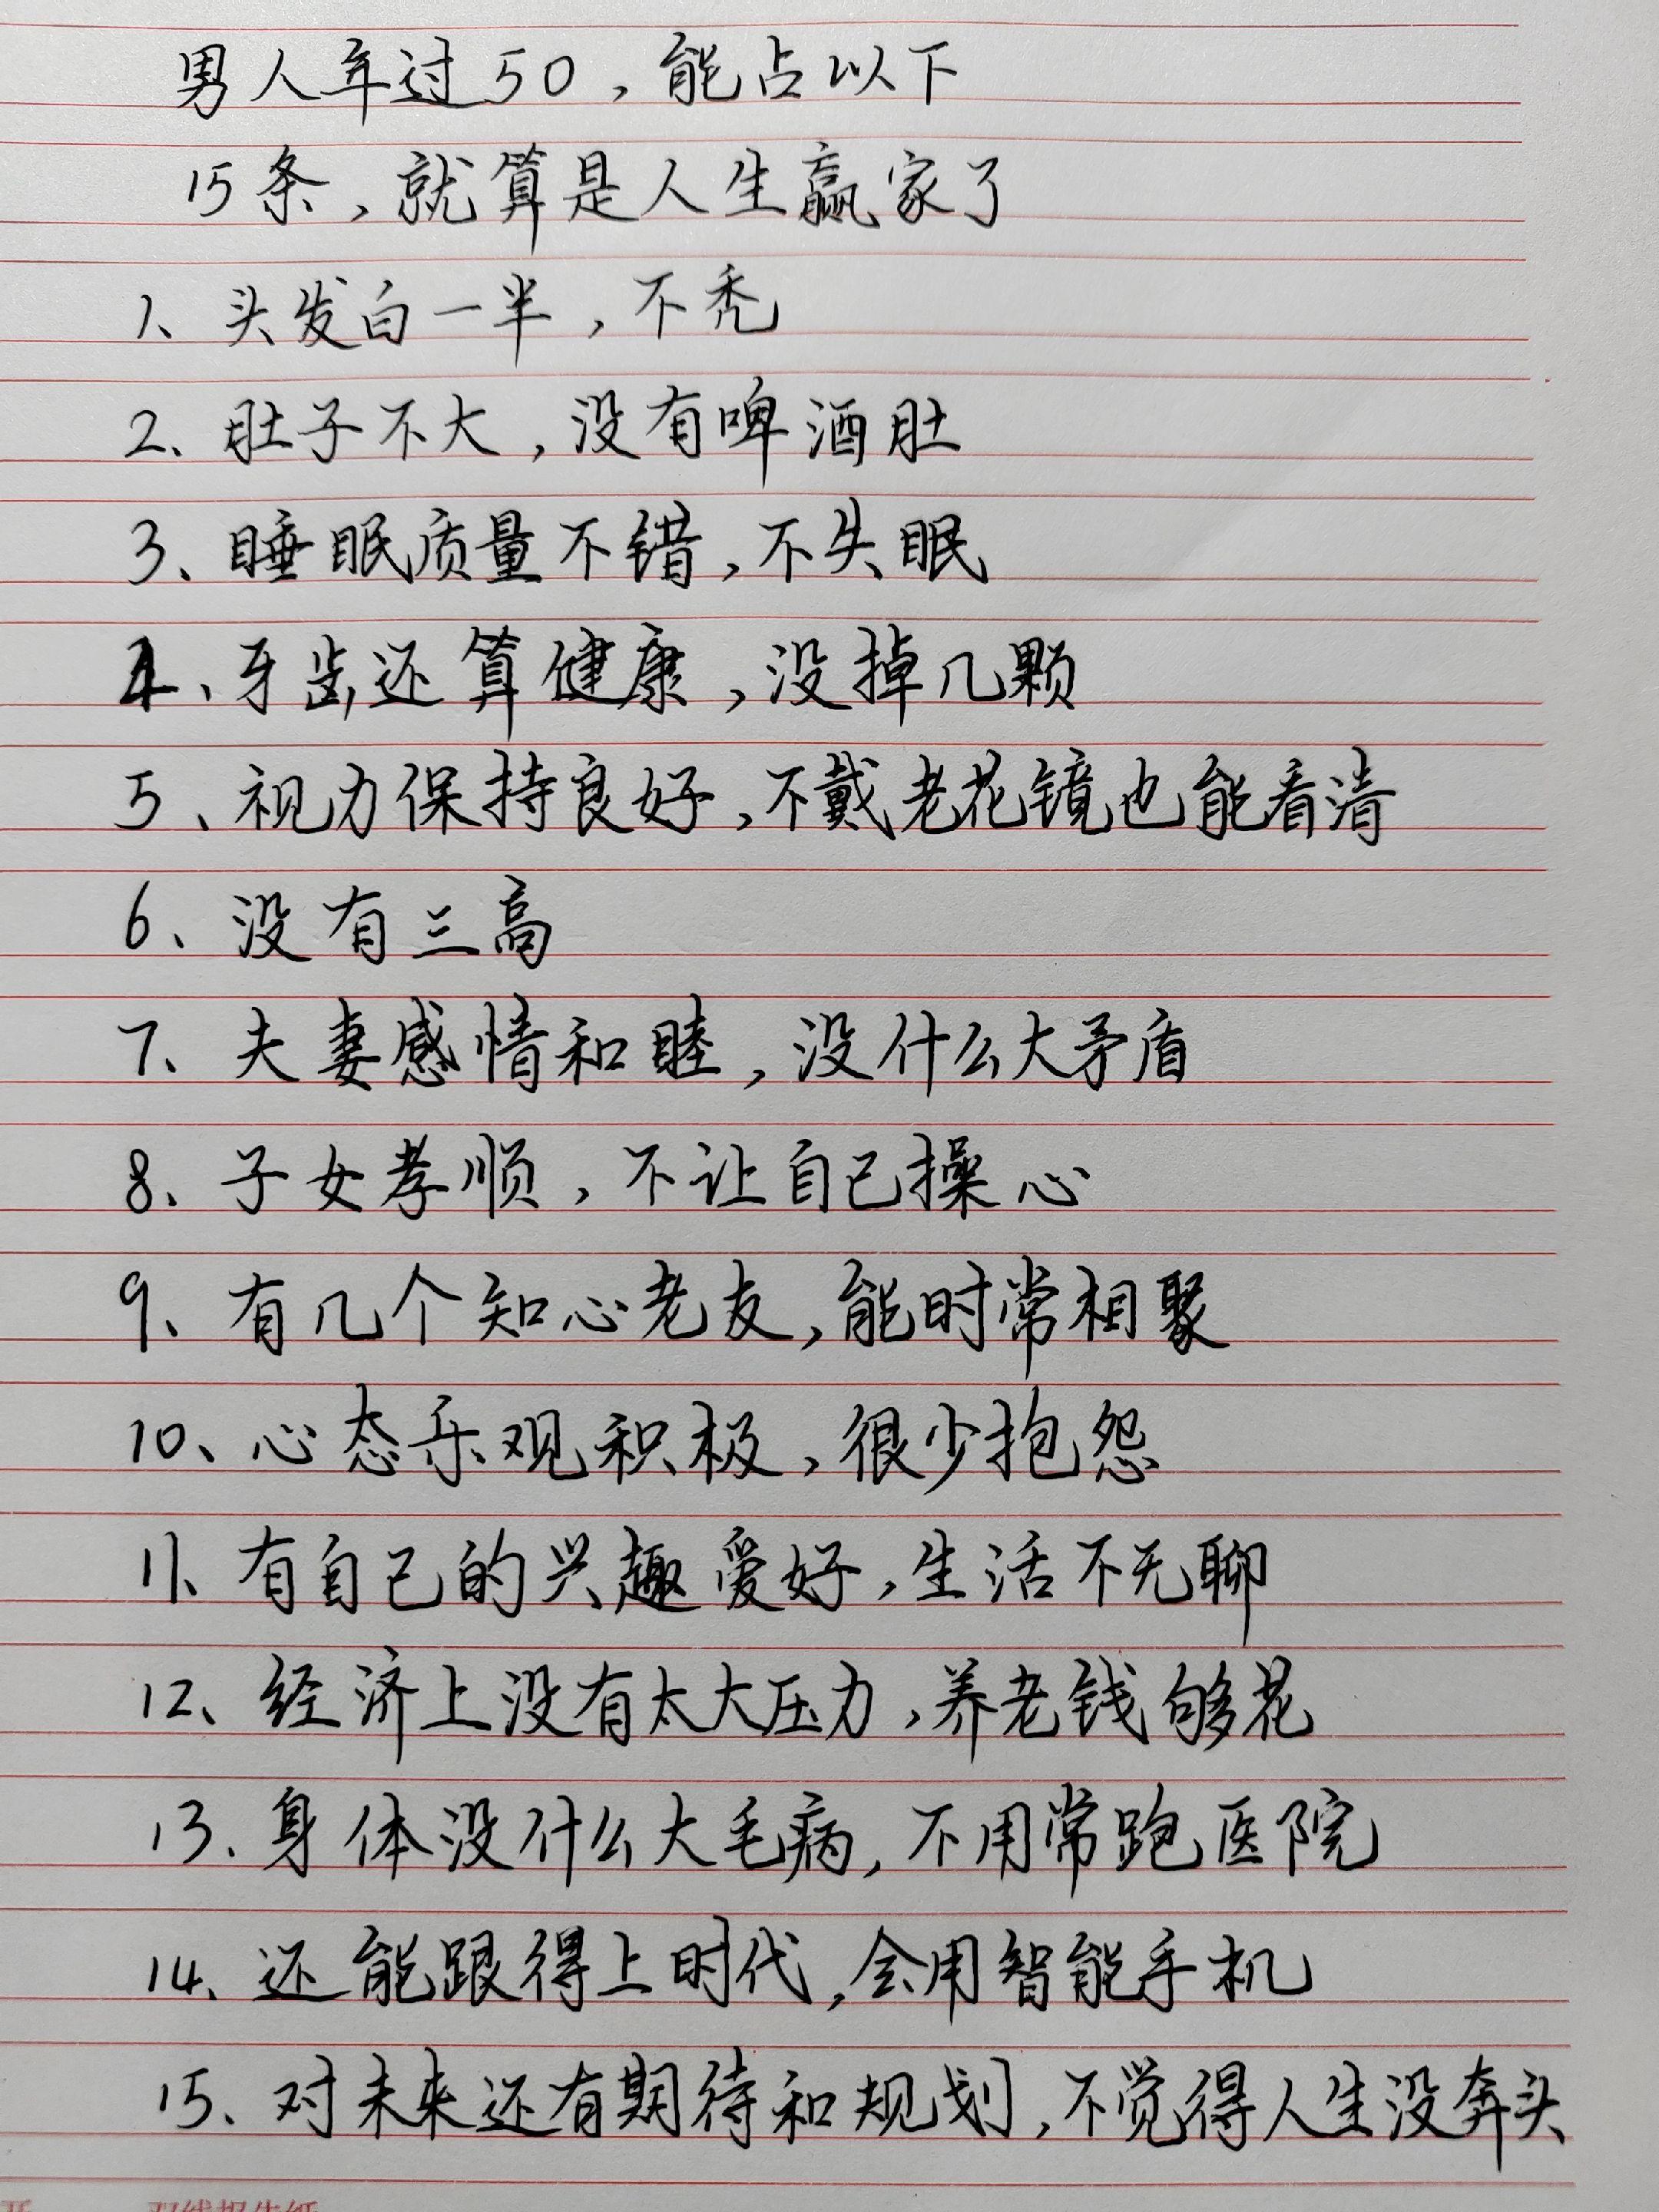 男人年过50，能占以下
15条，就算是人生赢家了
1、头发白一半，不秃
2、肚子不大，没有啤酒肚
3、睡眠质量不错，不失眠
4、牙齿还算健康，没掉几颗
5、视力保持良好，不戴老花镜也能看清
6、没有三高
7、夫妻感情和睦，没什么大矛盾
8、子女孝顺，不让自己操心
9、有几个知心老友，能时常相聚
10、心态乐观积极，很少抱怨
11、有自己的兴趣爱好，生活不无聊
12、经济上没有太大压力，养老钱够花
13、身体没什么大毛病，不用常跑医院
14、还能跟得上时代，会用智能手机
15、对未来还有期待和规划，不觉得人生没奔头